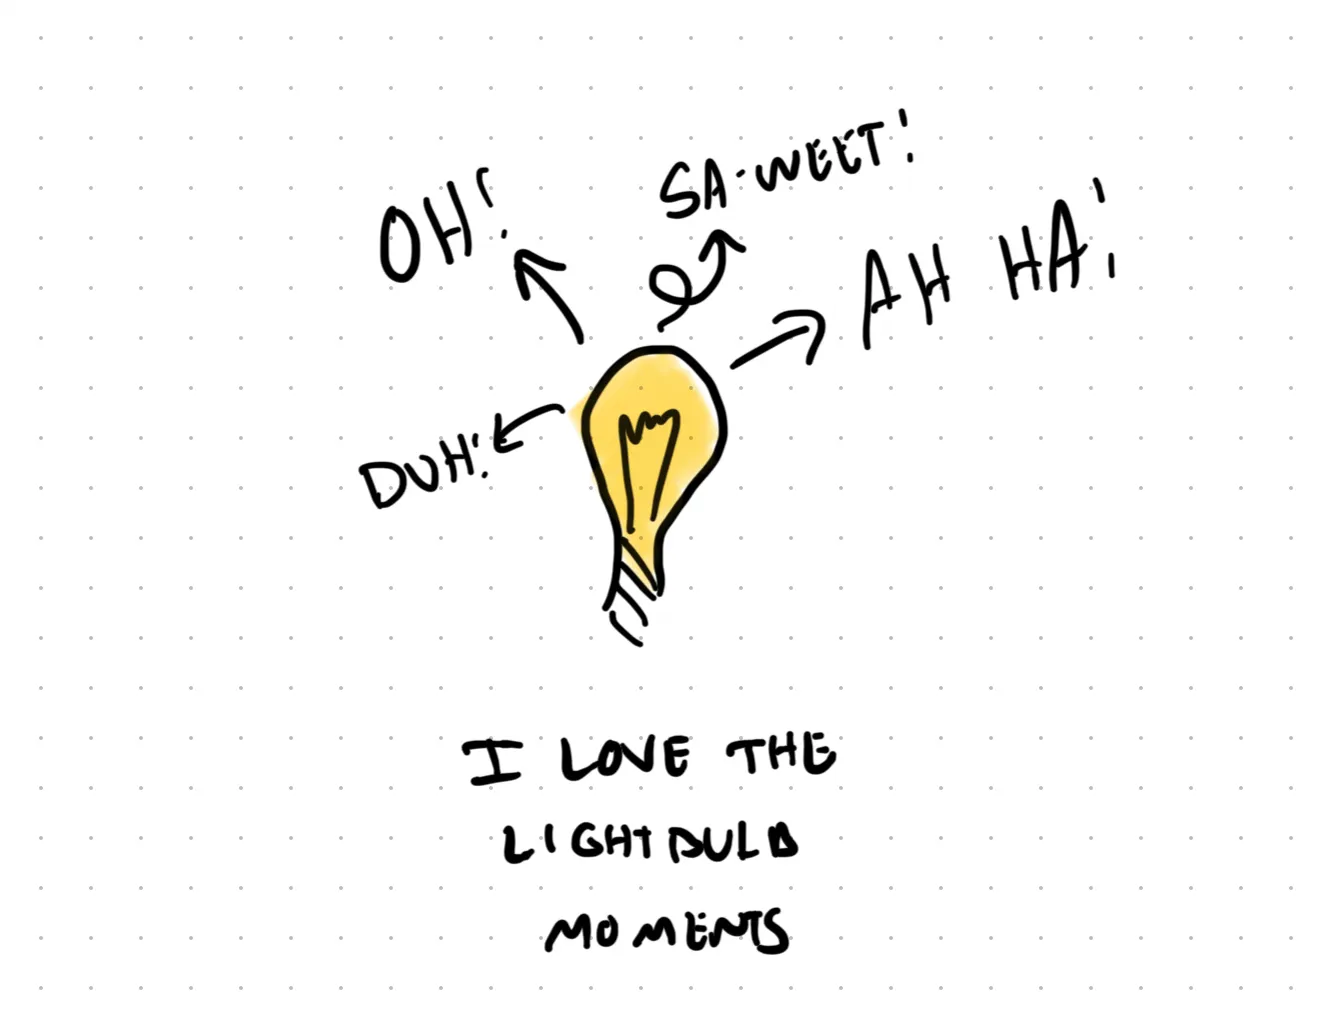 SA-WEET!
OH!
AH HA!
DUH!
I LOVE THE
LIGHTBULB
MOMENTS